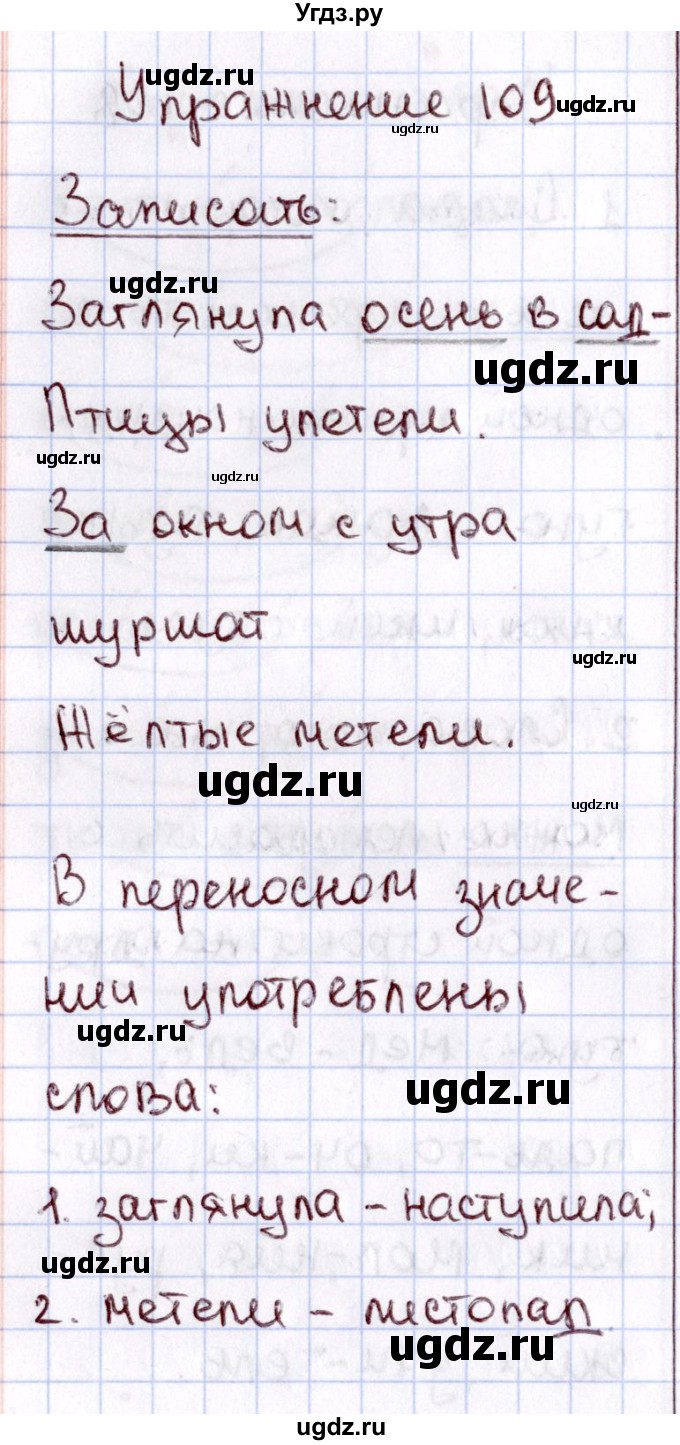 Угдз.ру
ugdz.ru
Упражнение 109
ugdz.ru
ugdz.ru
Записать:
ugdz.ru
Заглянула осень в сад-
ugdz.ru
Птицы улетели.
ugdz.ru
ugdz.ru
За окном с утра
шуршат
ugdz.ru
Жёлтые метели.
ugdz.ru
ugdz.ru
В переносном значе-
нии употреблены
ugdz.ru
слова:
ugdz.ru
1. заглянула - наступила;
ugdz.ru
2. метели - листопад
ugdz.ru
ugdz.ru